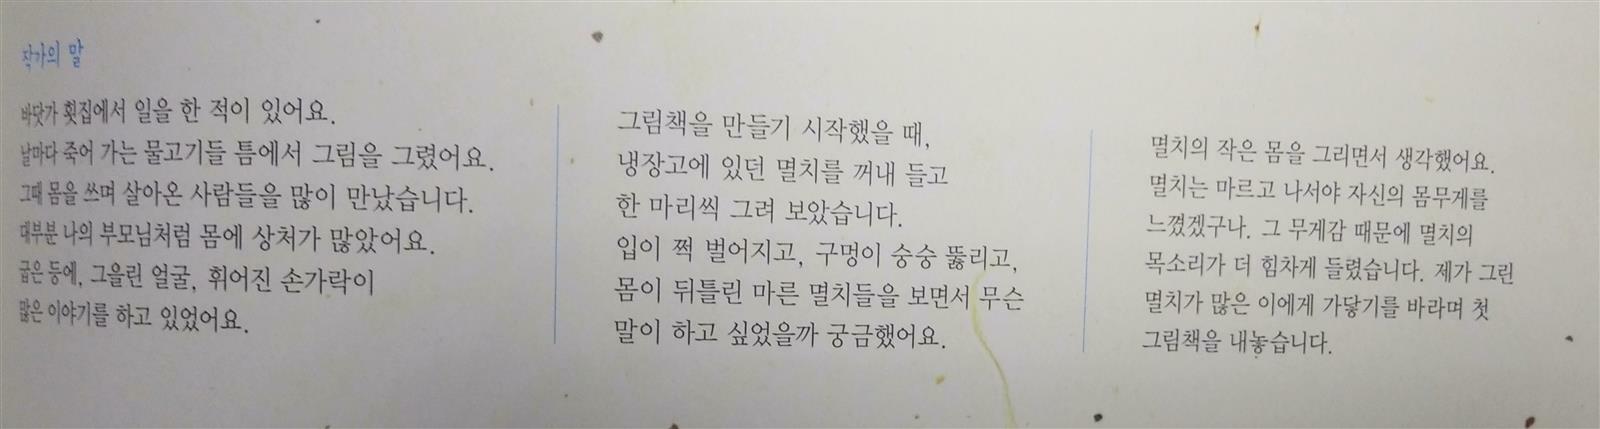 작가의 말
바닷가 횟집에서 일을 한 적이 있어요.
날마다 죽어 가는 물고기들 틈에서 그림을 그렸어요.
그때 몸을 쓰며 살아온 사람들을 많이 만났습니다.
대부분 나의 부모님처럼 몸에 상처가 많았어요.
굽은 등에, 그을린 얼굴, 휘어진 손가락이
많은 이야기를 하고 있었어요.
그림책을 만들기 시작했을 때,
냉장고에 있던 멸치를 꺼내 들고
한 마리씩 그려 보았습니다.
입이 쩍 벌어지고, 구멍이 숭숭 뚫리고,
몸이 뒤틀린 마른 멸치들을 보면서 무슨
말이 하고 싶었을까 궁금했어요.
멸치의 작은 몸을 그리면서 생각했어요.
멸치는 마르고 나서야 자신의 몸무게를
느꼈겠구나. 그 무게감 때문에 멸치의
목소리가 더 힘차게 들렸습니다. 제가 그린
멸치가 많은 이에게 가닿기를 바라며 첫
그림책을 내놓습니다.